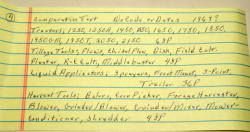 Comparison Test No Code or Dates 1969?
Tractors, 1250, 1250A, 1450, 1650, 1750, 1850,
1950T, 2050, 2150 68P
Tillage Tools, Plows, Chisel Plow, Disk, Field Cult.
Planter, Rot. Cult, Middlebuster 48P
Liquid Applicators, Sprayers, Front Mount, 3-Point,
Trailer 36P
Harvest Tools: Balers, Corn Picker, Forage Harvester,
Blower, Grinder/Blower, Grinder/Mixer, Mower-
Conditioner, Shredder 48P